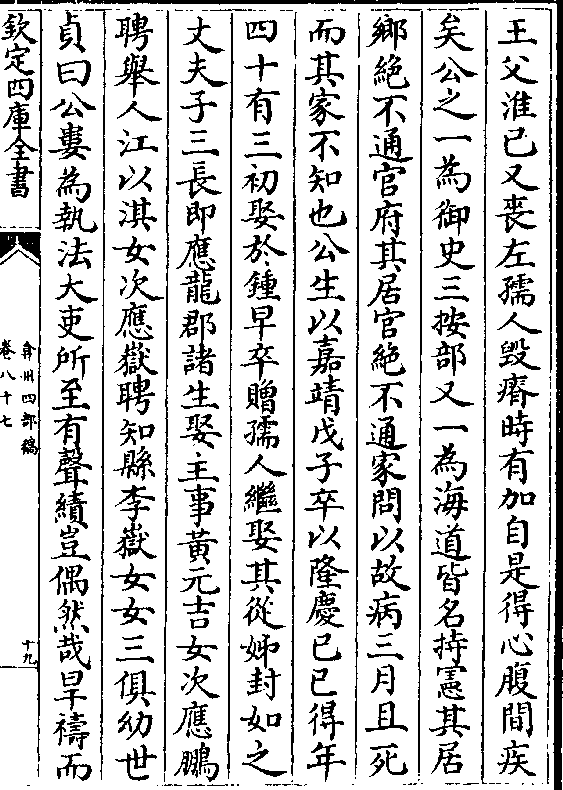 王父淮已又喪左孺人毀瘠時有加自是得心腹間疾
矣公之一為御史三按部又一為海道皆名持憲其居
鄉絶不通官府其居官絶不通家問以故病三月且死
而其家不知也公生以嘉靖戊子卒以隆慶己巳得年
四十有三初娶於鍾早卒贈孺人繼娶其從姊封如之
丈夫子三長即應龍郡諸生娶主事黃元吉女次應鵬
聘舉人江以淇女次應嶽聘知縣李嶽女女三俱幼世
貞曰公婁為執法大吏所至有聲績豈偶然哉旱禱而
欽定四庫全書
弇州四部稿
卷八十七
十九